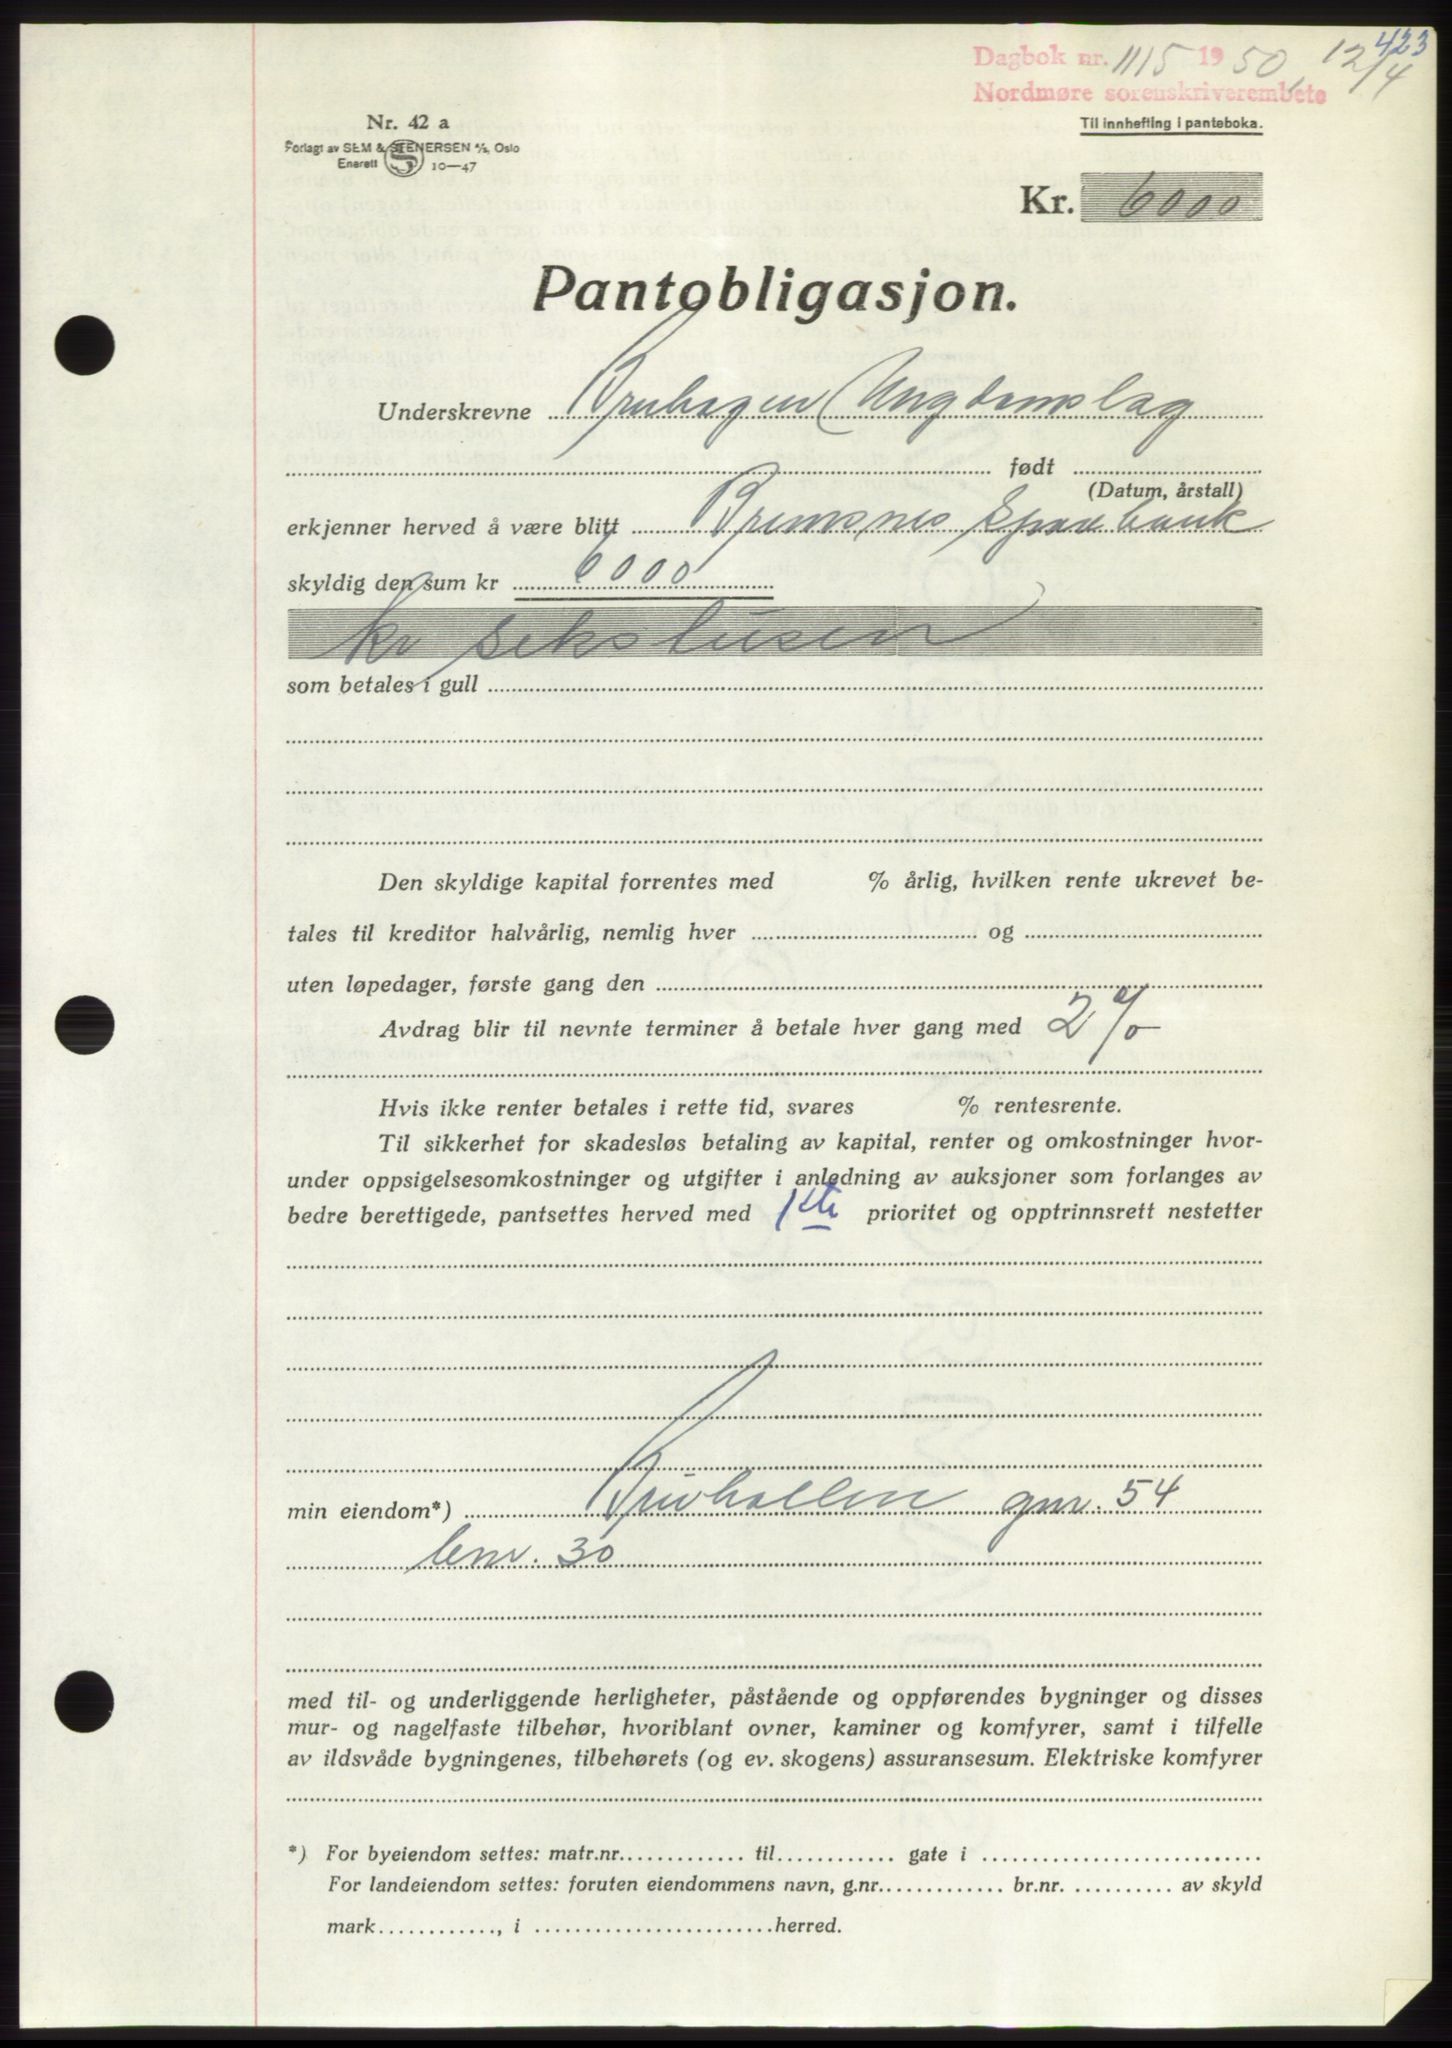 423
Dagbok nr. 1115 1950 12/4
Nordmøre sorenskriverembete
Til innhefting i panteboka.
Nr. 42 a
Forlagt av SEM & STENERSEN A/S, Oslo
Enerett S 10—47
Kr. 6000
Pantobligasjon.
Underskrevne Bruhagen Ungdomslag
født
(Datum, årstall)
erkjenner herved å være blitt Bremsnes Sparebank
skyldig den sum kr 6000
kr sekstusen
som betales i gull
Den skyldige kapital forrentes med % årlig, hvilken rente ukrevet be-
tales til kreditor halvårlig, nemlig hver og
uten løpedager, første gang den
Avdrag blir til nevnte terminer å betale hver gang med 2 %
Hvis ikke renter betales i rette tid, svares % rentesrente.
Til sikkerhet for skadesløs betaling av kapital, renter og omkostninger hvor-
under oppsigelsesomkostninger og utgifter i anledning av auksjoner som forlanges av
bedre berettigede, pantsettes herved med 1ste prioritet og opptrinnsrett nestetter
min eiendom*) Bruhallen gnr. 54
bnr. 30
med til- og underliggende herligheter, påstående og oppførendes bygninger og disses
mur- og nagelfaste tilbehør, hvoriblant ovner, kaminer og komfyrer, samt i tilfelle
av ildsvåde bygningenes, tilbehørets (og ev. skogens) assuransesum. Elektriske komfyrer
*) For byeiendom settes: matr.nr. til gate i
For landeiendom settes: foruten eiendommens navn, g.nr. br.nr. av skyld
mark , i herred.